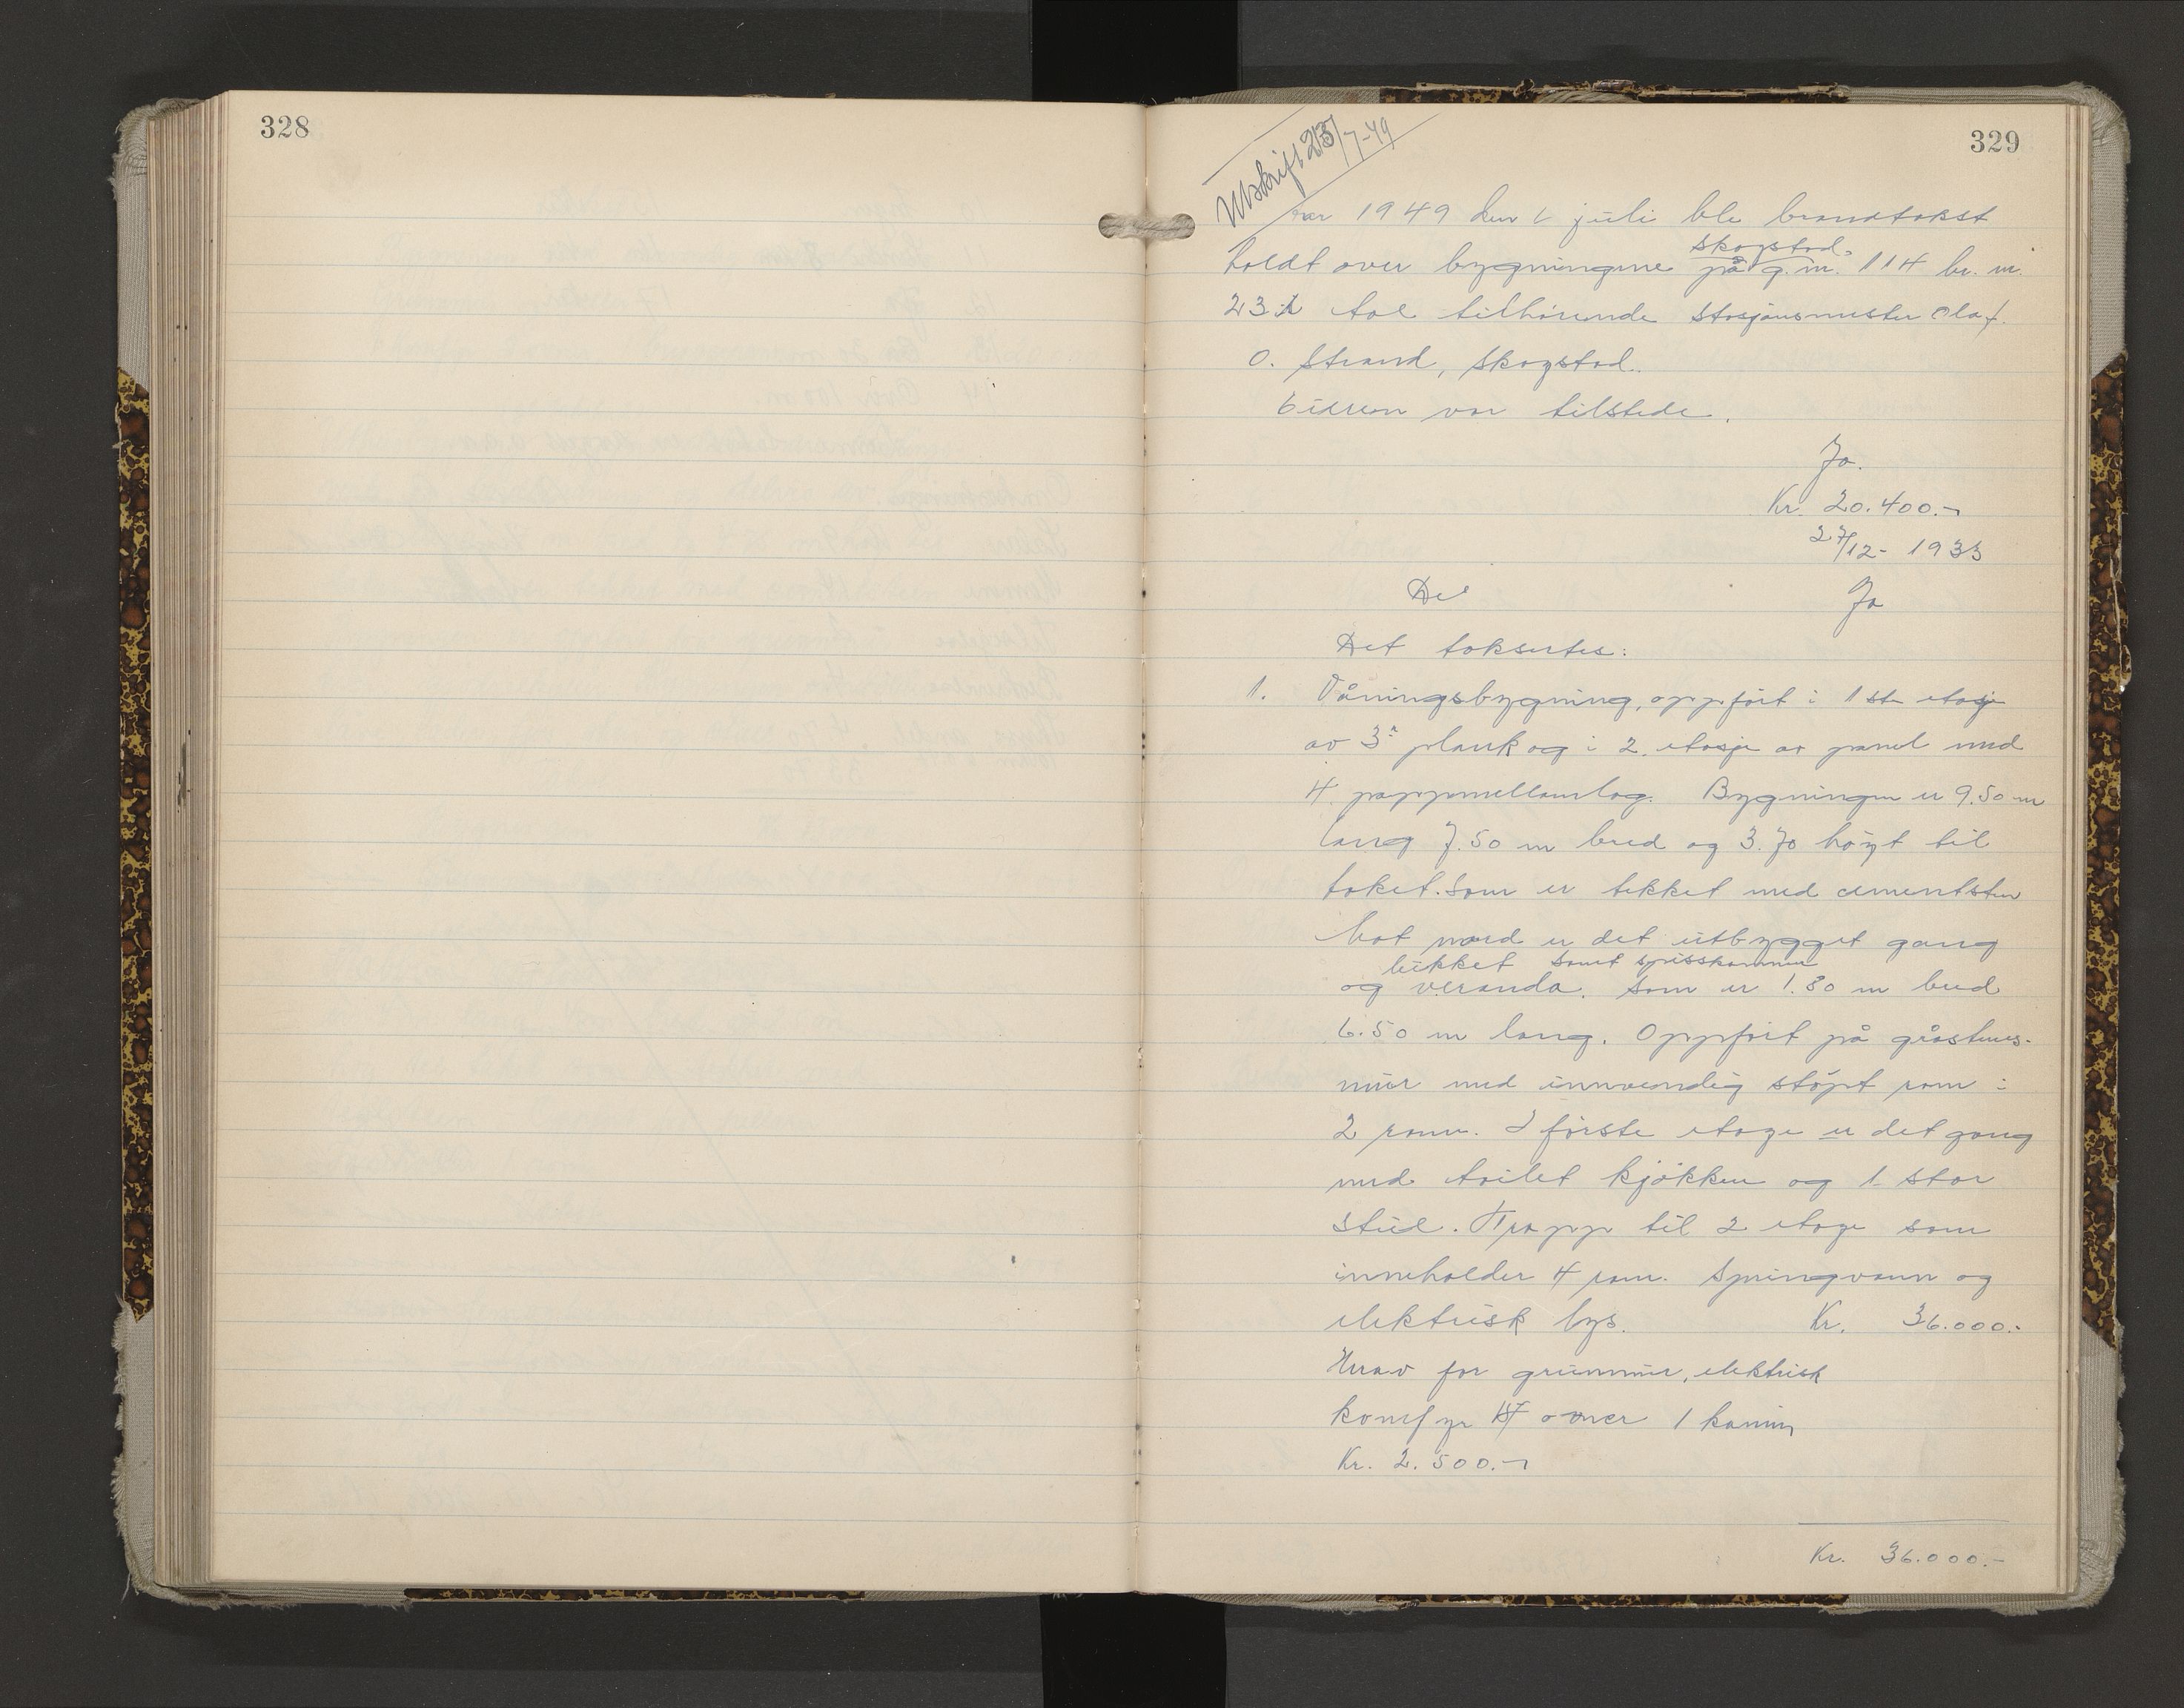 328
329
Utskrift 23/7-49
År 1949 den 6 juli ble brandtakst
holdt over bygningene på Skogstad g.nr. 114 br. nr.
23 i Aal tilhörende stasjonsmester Olaf
O. Strand, Skogstad.
Eieren var tilstede.
Ja.
Kr. 20.400.-
27/12- 1933
De Ja
Det taksertes:
1. Våningsbygning, oppfört i 1ste etasje
av 3" plank og i 2. etasje av panel med
4 pappmellomlag. Bygningen er 9.50 m
lang 7.50 m bred og 3.70 höyt til
taket. Som er tekket med cementsten
Mot nord er det utbygget gang
lukket samt spisskammer
og veranda. som er 1.80 m bred
6.50 m lang. Oppfört på gråstens-
mur med innvendig stöpt rom i
2 rom. I förste etage er det gang
med toilet kjökken og 1 stor
stue. Trapp til 2 etage som
inneholder 4 rom. Springvann og
elektrisk lys. Kr. 36.000.-
Herav for grunnmur, elektrisk
komfyr ovner 1 kamin
Kr. 2.500.-
Kr. 36.000.-